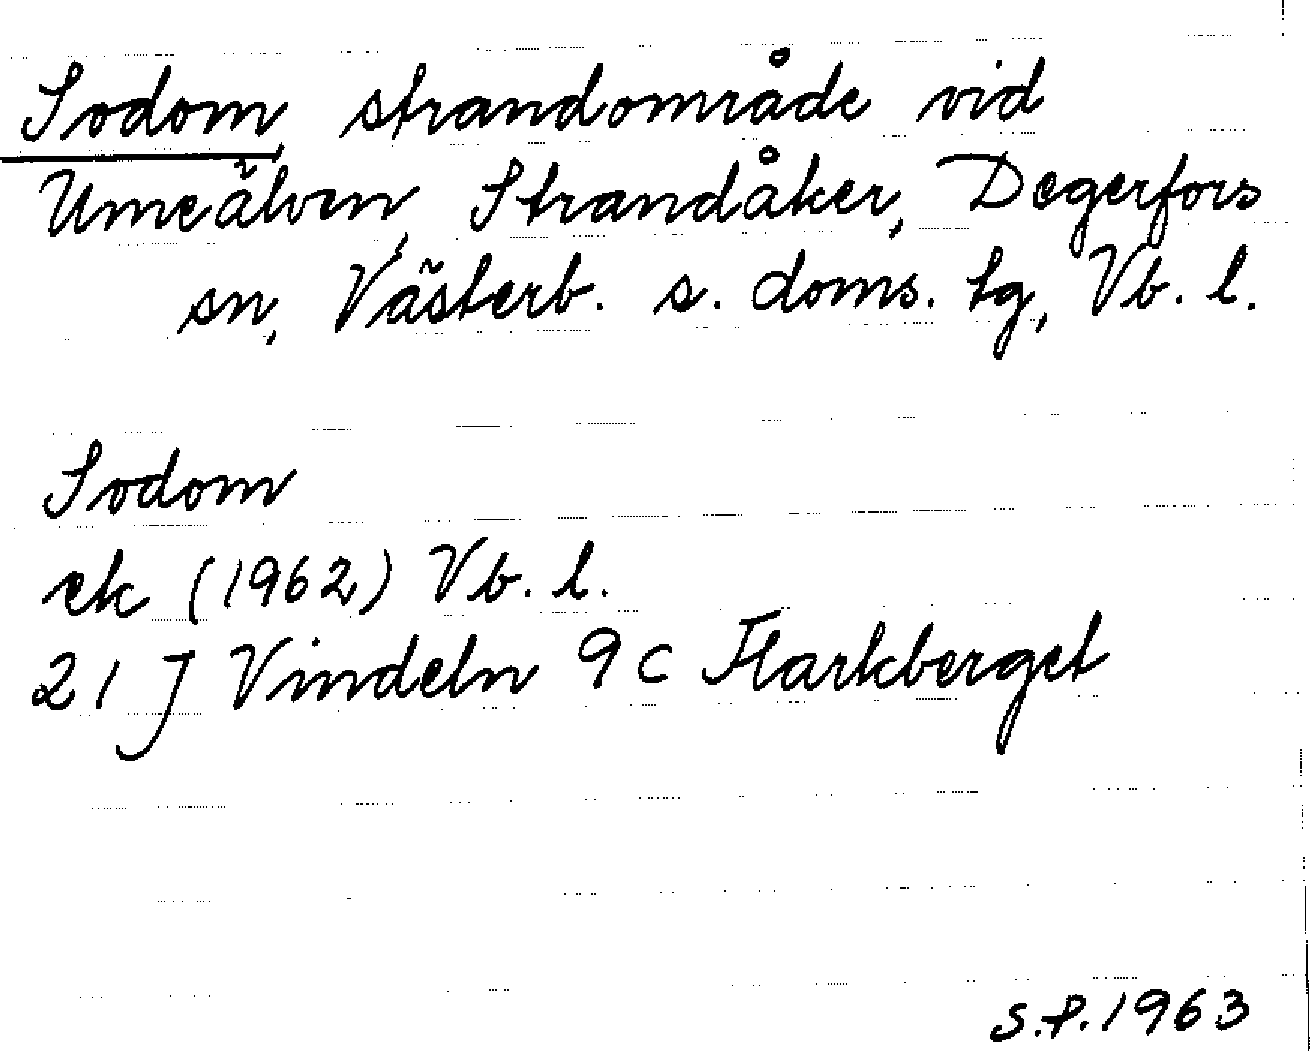 Sodom, strandområde vid
Umeälven, Strandåker, Degerfors
sn, Västerb. s. doms. tg, Vb. l.
Sodom
ek (1962) Vb. l.
21 J Vindeln 9 c Flarkberget
S.P. 1963